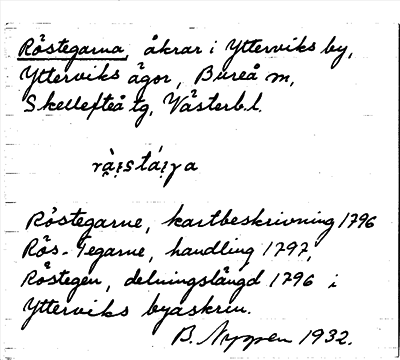 Röstegarna, åkrar i Ytterviks by,
Ytterviks ägor, Bureå sn,
Skellefteå tg, Västerb.l.
Röstegarne, kartbeskrivning 1796
Rös-Tegarne, handling 1797,
Röstegen, delningslängd 1796 i
Ytterviks byaskrin.
B. Nyppen 1932.